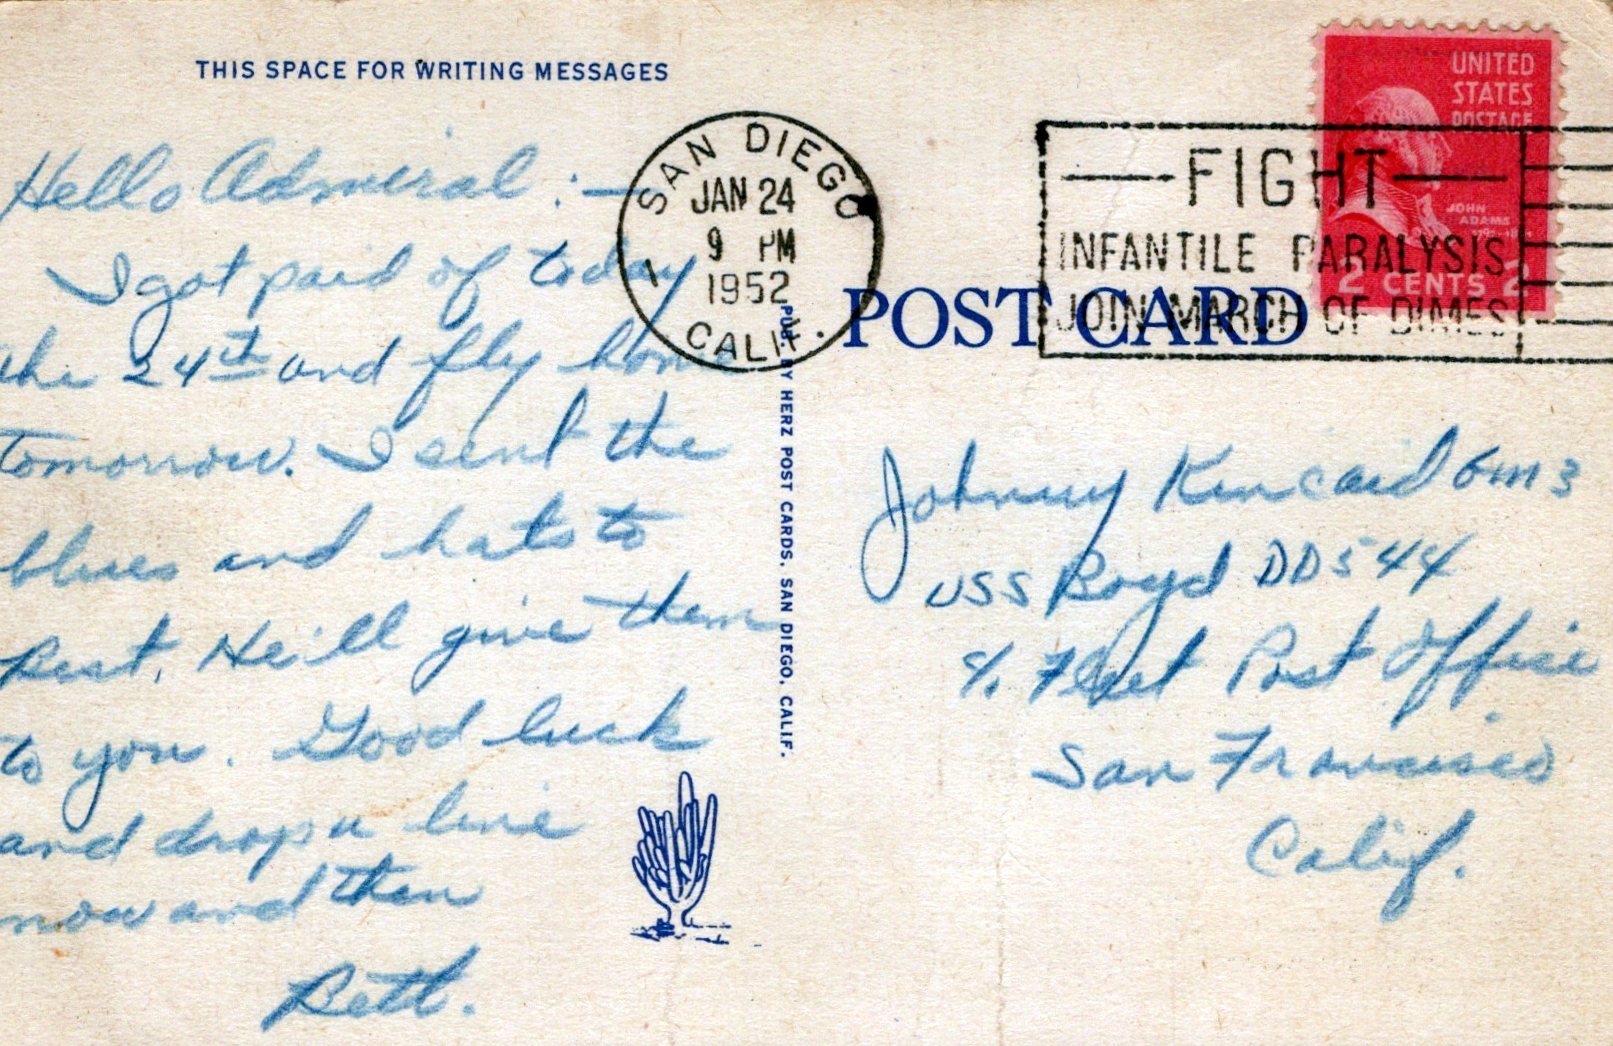 THIS SPACE FOR WRITING MESSAGES
Hello Admiral :—
I got paid of today
the 24th and fly home
tomorrow. I sent the
blues and hats to
Pest. He'ill give them
to you. Good luck
and drop a line
now and then
SAN DIEGO
JAN 24
9 PM
1952
CALIF.
1
PUB. BY HERZ POST CARDS, SAN DIEGO, CALIF.
POST CARD
FIGHT
INFANTILE PARALYSIS
JOIN MARCH OF DIMES
UNITED
STATES
POSTAGE
JOHN
ADAMS
2 CENTS 2
Johnny Kincaid GM3
USS Boyd DD544
c/o Fleet Post Office
San Francisco
Calif.